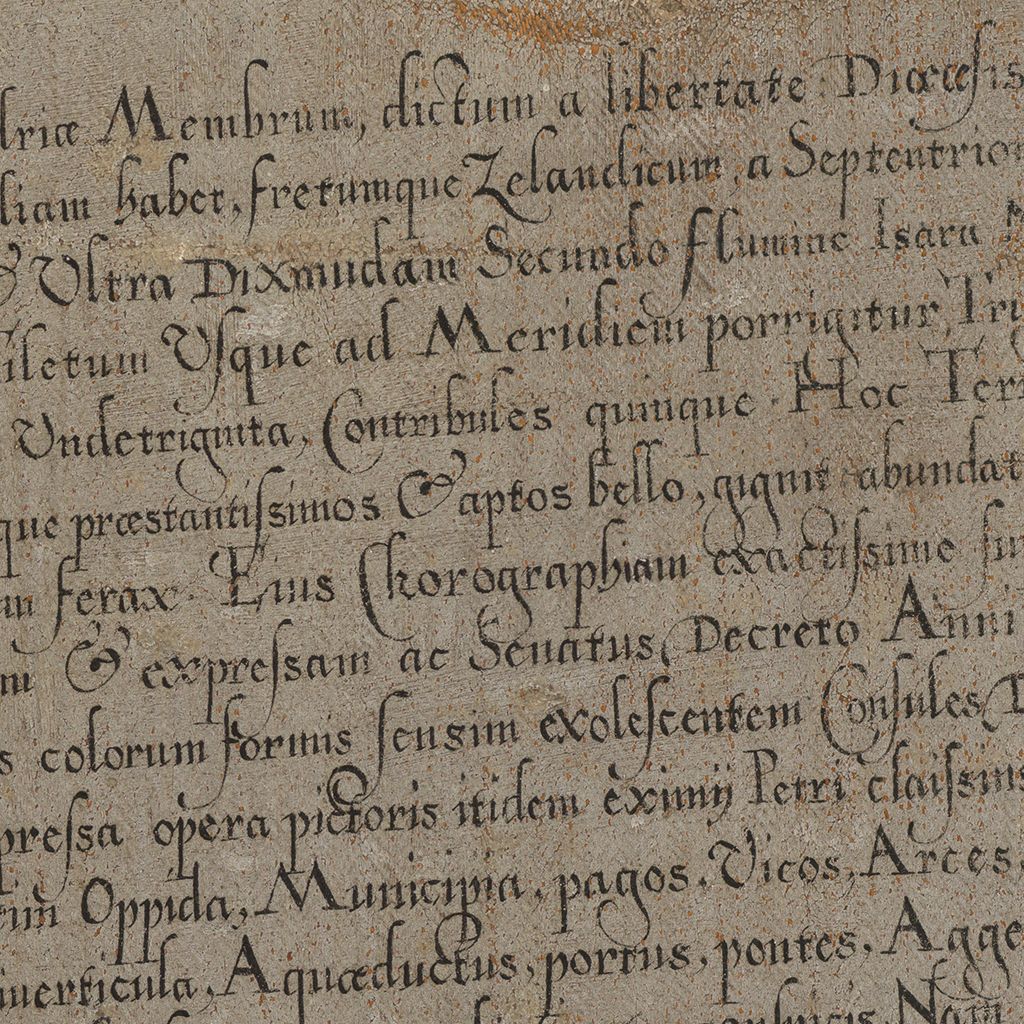 driæ Membrum, dictum a libertate Diœcesis
liam habet, fretumque Zelandicum, a Septentrion
& Ultra Dixmudam Secundo flumine Isara
iletum Usque ad Meridiem porrigitur, Tri
Undetriginta, Contribules quinque. Hoc Terr
que præstantissimos & aptos bello, gignit abundat
m ferax. Eius Chorographiam exactissimo sin
m & expressam ac Senatus Decreto Anni
s colorum formis sensim exolescentem Consules
pressa opera pictoris itidem eximij Petri claissins
tim Oppida, Municipia, pagos, Vicos, Arces,
iverticula, Aquæductus, portus, pontes, Agge
Nam